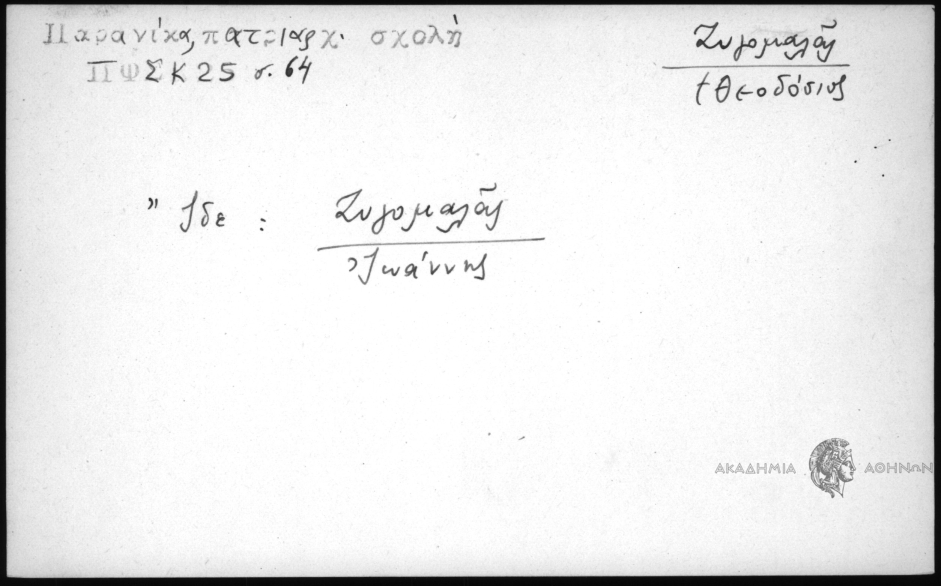 Παρανίκα, πατριαρχ. σχολή
ΠΨΣΚ 25 σ. 64
Ζυγομαλᾶς
† Θεοδόσιος
" Ἰδε : Ζυγομαλᾶς
Ἰωάννης
ΑΚΑΔΗΜΙΑ ΑΘΗΝΩΝ